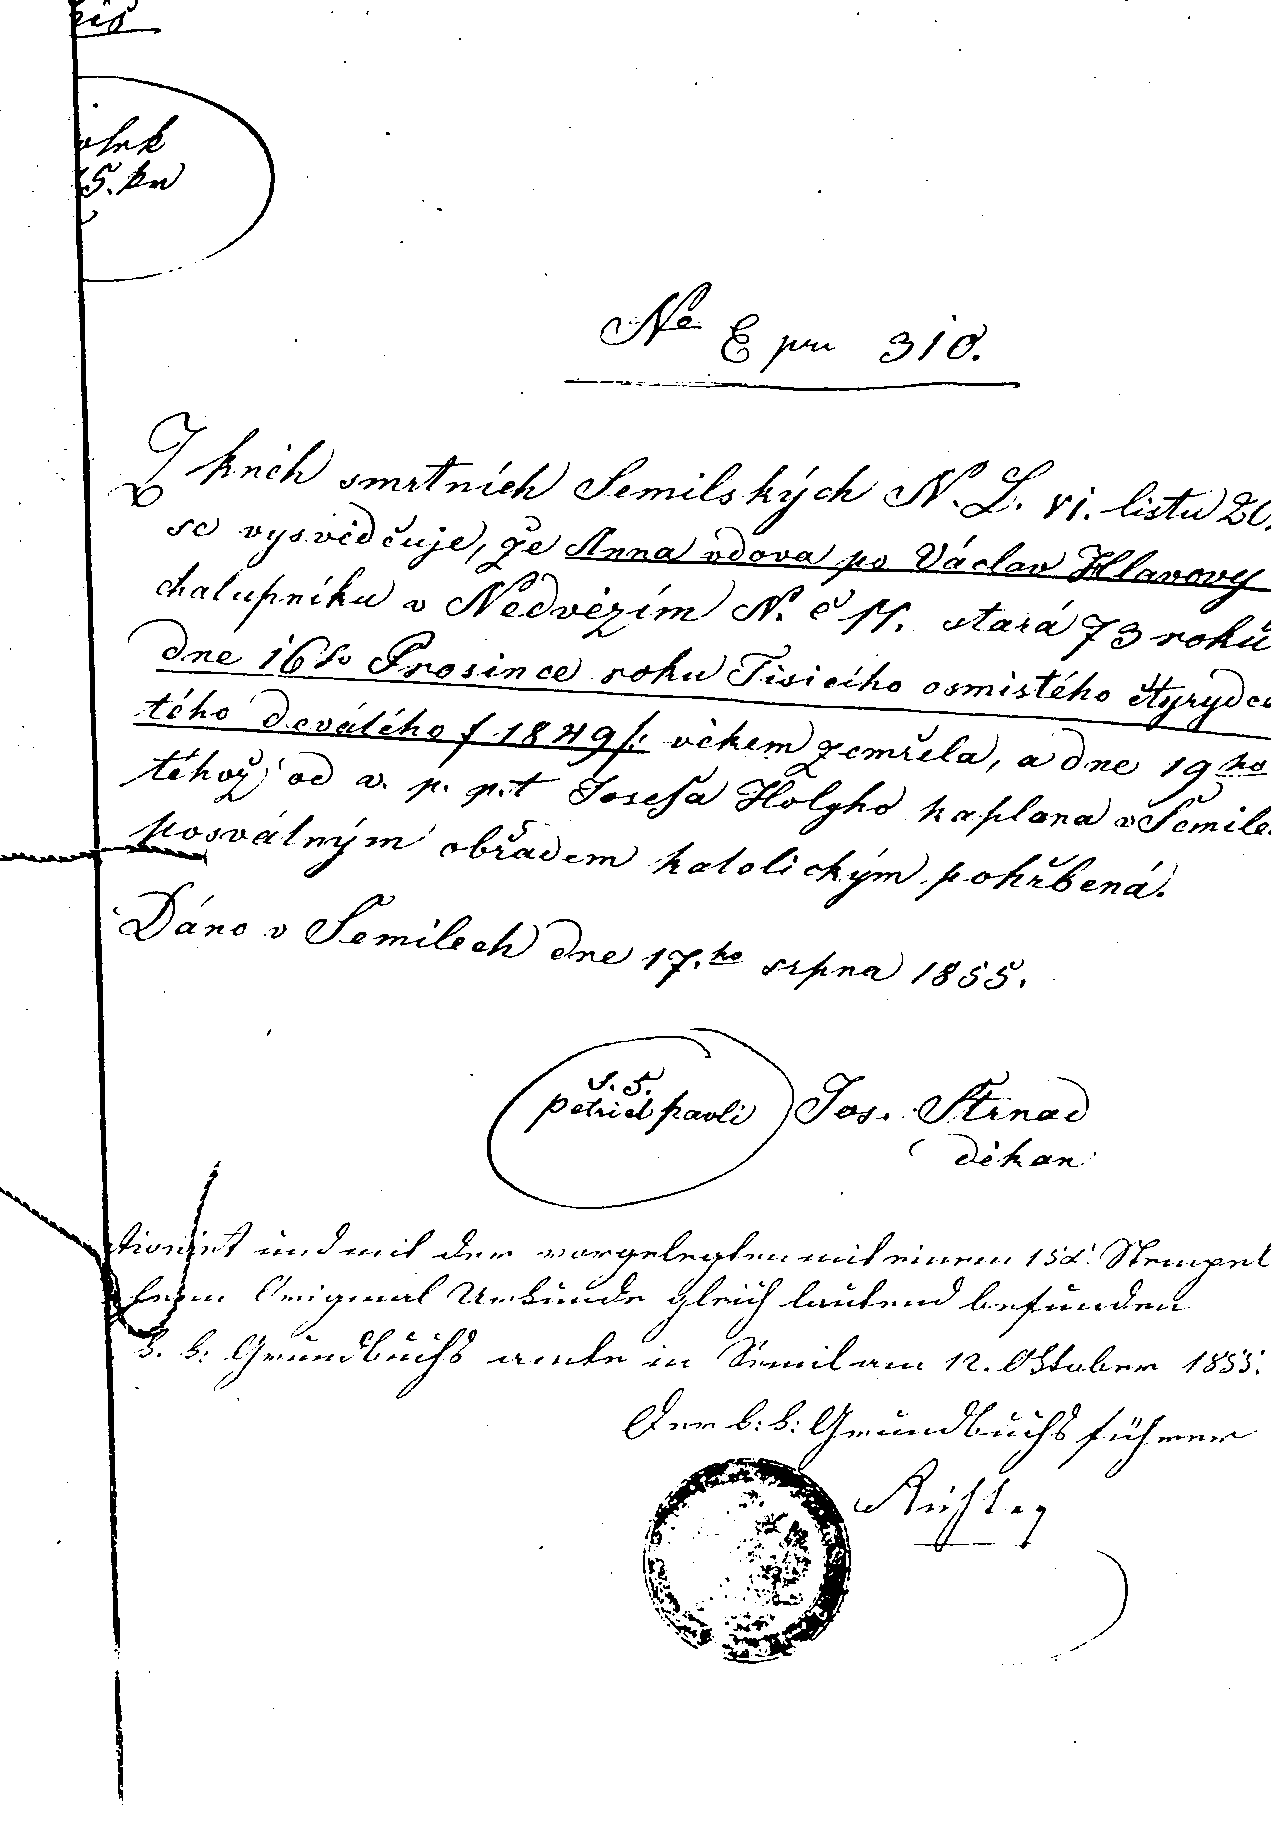 olek
5. kr
No E pr 310.
Z knih smrtních Semilských N. L. VI. listu 20.
se vysvědčuje, že Anna vdova po Václav Hlavovy
chalupníku v Nedvězím N. č 11. stará 73 roků
dne 16ho Prosince roku Tisicího osmistého čtyrydce
tého devátého /: 1849 /: věkem zemřela, a dne 19ho
téhož od v. p. p.t Josefa Holyho kaplana v Semile
posvátným obřadem katolickým pohřbená.
Dáno v Semilech dne 17.ho srpna 1855.
S. S.
petri et pavli
Jos. Strnad
děkan
tionirt und mit der vorgelegten mit einem 15x Stempel
Original Urkunde gleich lautend befunden
k. k. Grundbuchs amte in Semil am 12. Oktober 1855.
Der k: k: Grundbuchsführer